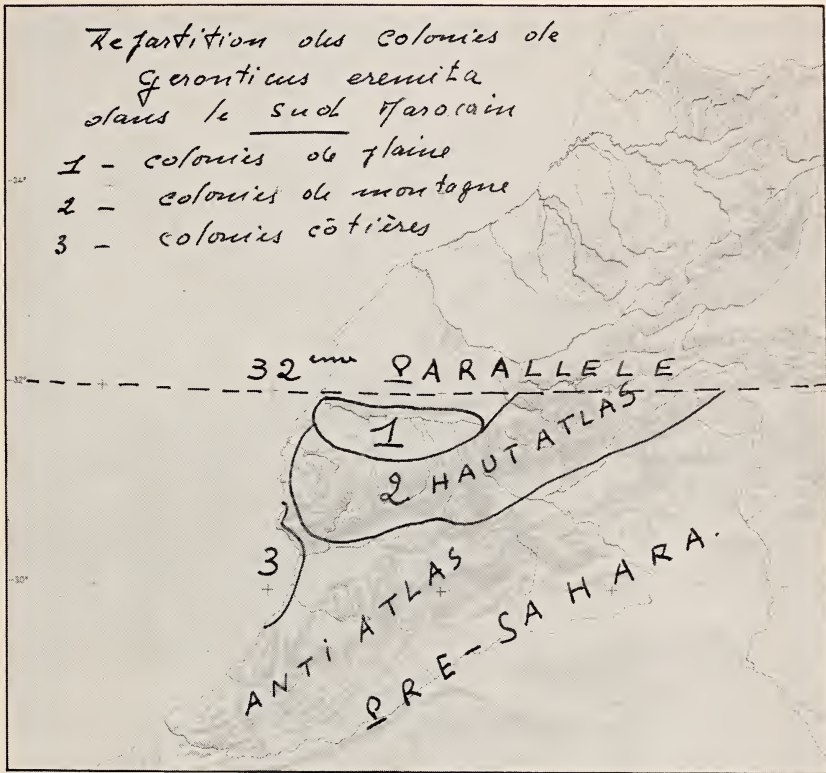 Repartition des colonies de
Geronticus eremita
dans le sud Marocain
1 - colonies de plaine
2 - colonies de montagne
3 - colonies côtières
34°
32ème PARALLELE
32°
1
2 HAUT ATLAS
3
30°
ANTI ATLAS
PRE-SAHARA.